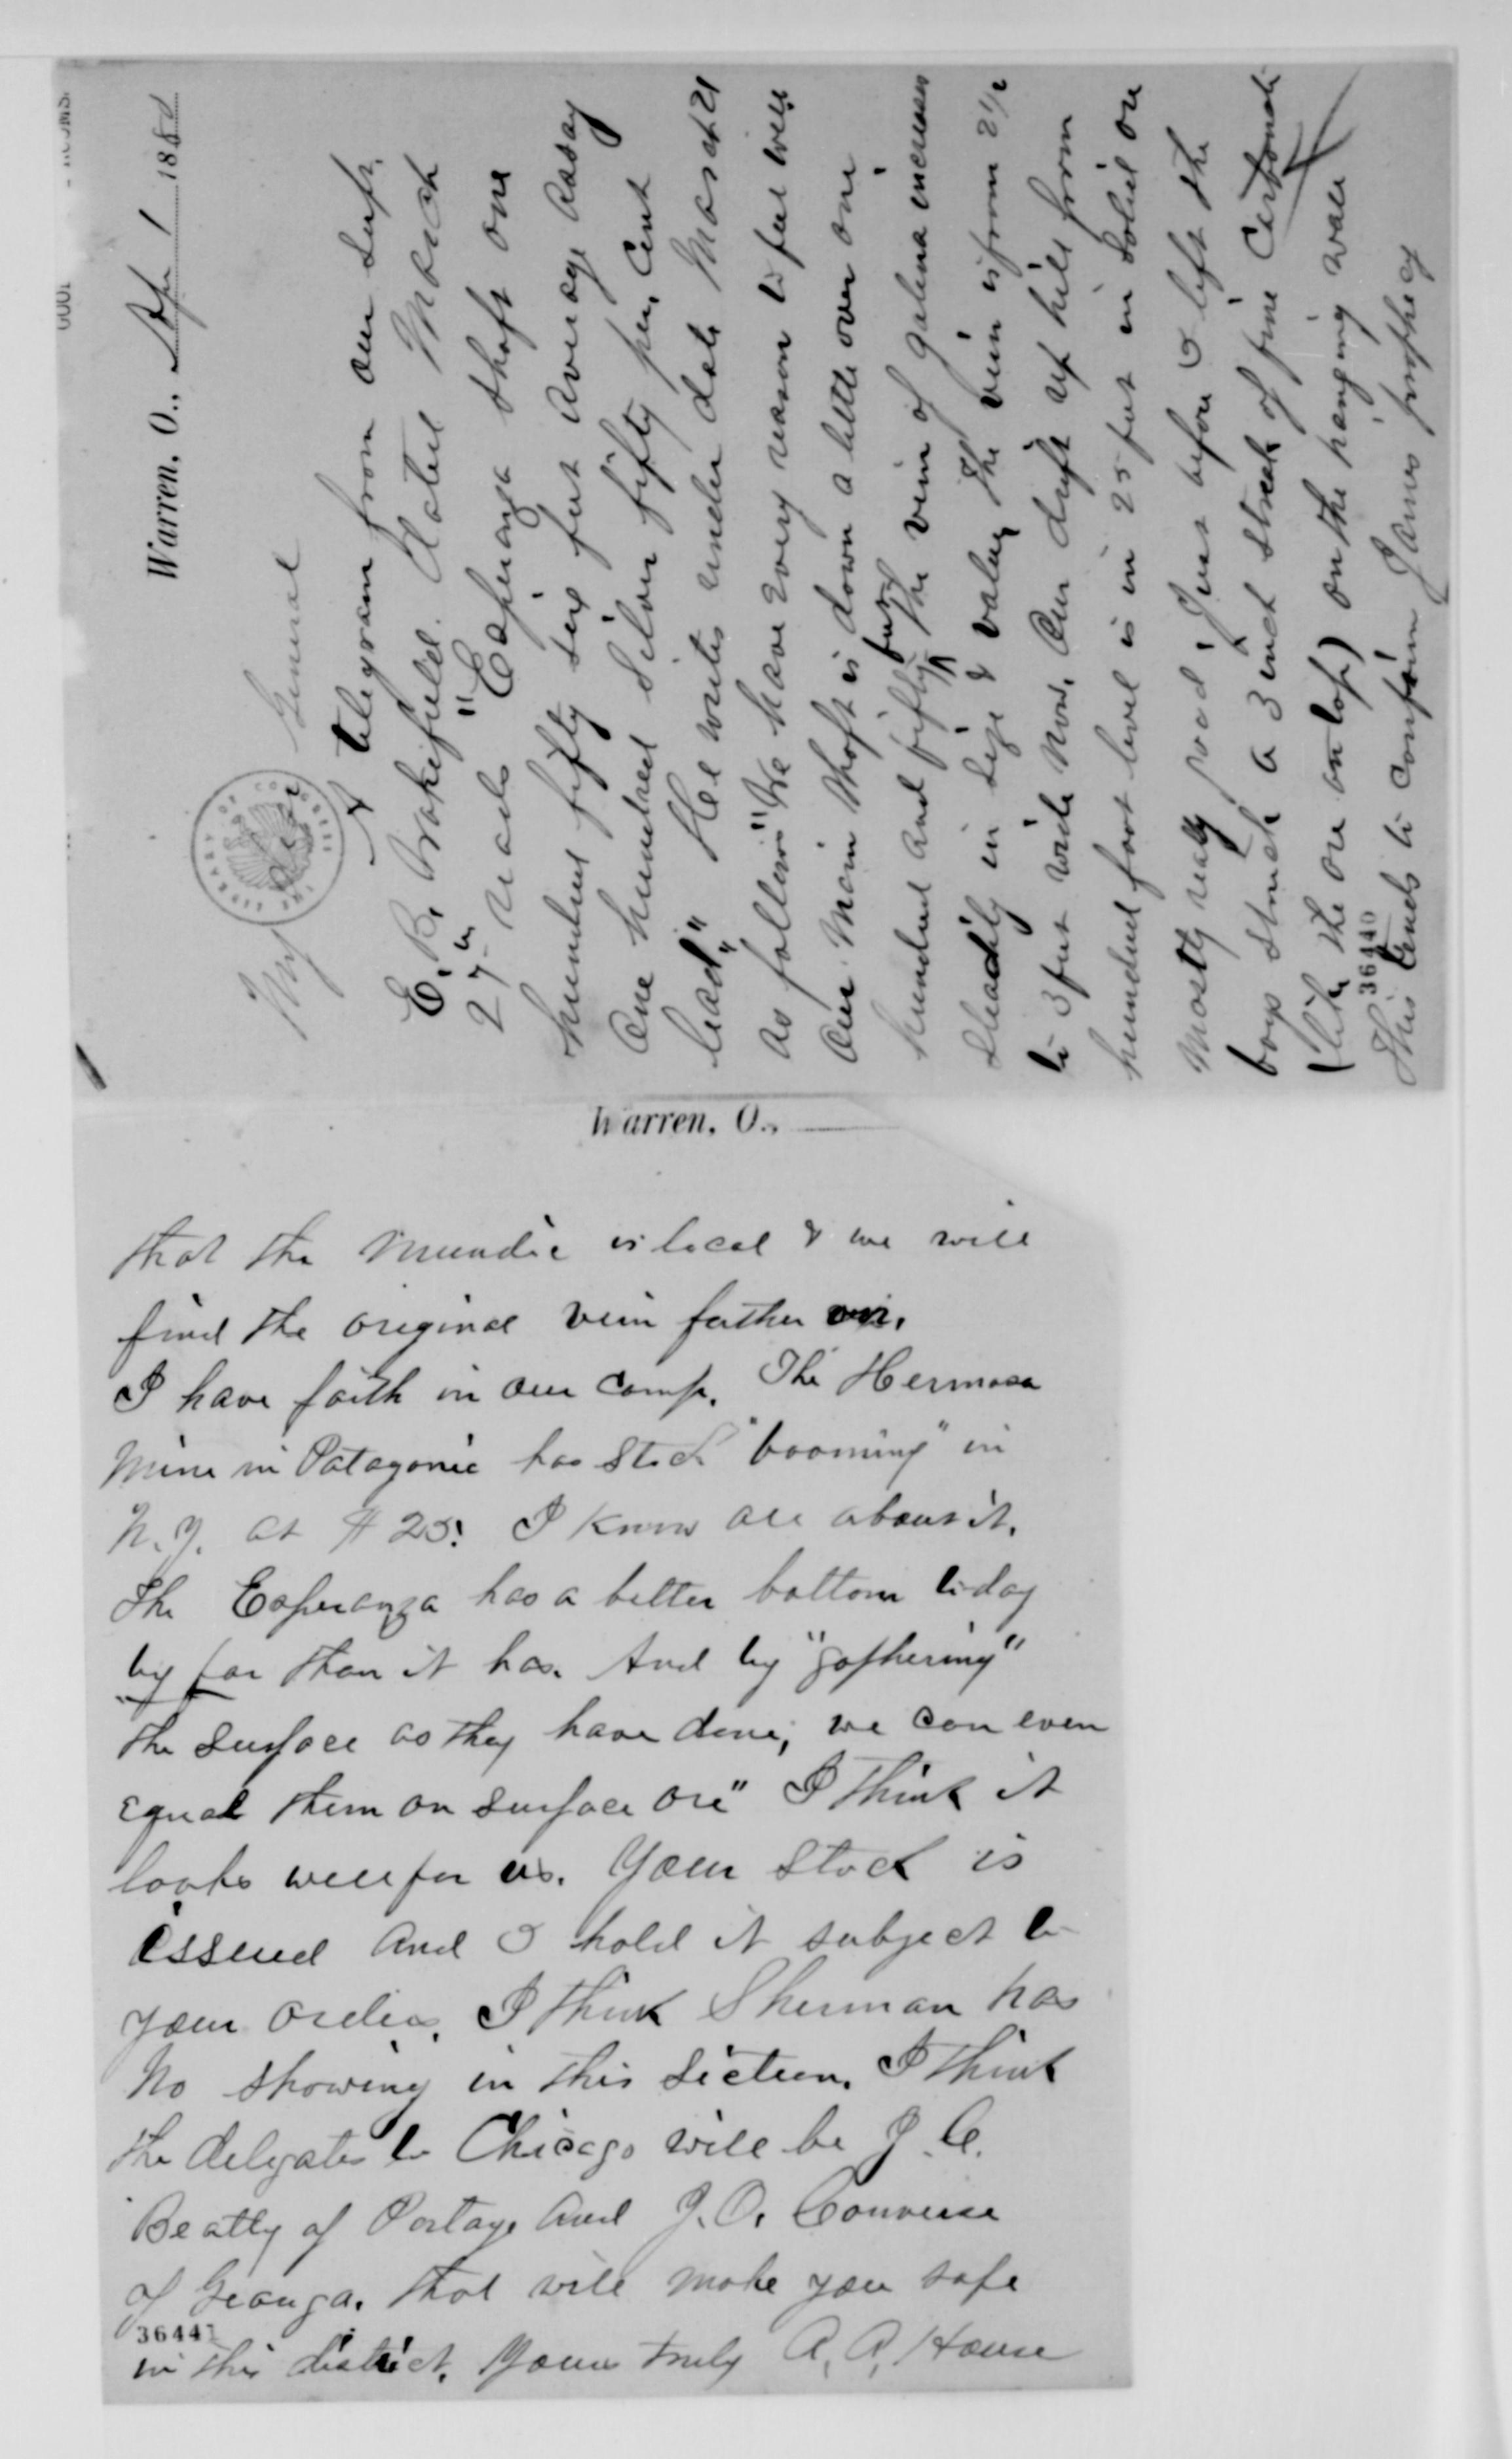 Warren, O., Apr 1 1880
My Dear General
A telegram from our Supt.
E. B. Wakefield. dated March
27th reads "Esperanza shaft one
hundred fifty six feet average assay
One hundred Silver fifty per, cent
lead" He writes under date March 21
as follows "We have every reason to feel well
Our Main Shaft is down a little over one
hundred and fifty feet The vein of galena increases
Steadily in size & value, The vein is from 2 1/2
to 3 feet wide now, Our drift up hill from
hundred foot level is in 25 feet in solid ore
Mostly really good, Just before I left the
boys struck a 3 inch streak of fine Carbonate
(like the ore on top) on the hanging wall
This tends to confirm James prophecy
36440
Warren, O.,
that the Mundic is local & we will
find the original vein farther on.
I have faith in our camp. The Hermosa
Mine in Patagonia has stock "booming" in
N.Y. at $25. I know all about it.
The Esperanza has a better bottom to day
by far than it has. And by "gophering"
the surface as they have done, we can even
equal them on surface ore" I think it
looks well for us. Your stock is
issued and I hold it subject to
your orders. I think Sherman has
No showing in this Section. I think
the delegates to Chicago will be J. C.
Beatty of Portage and J. O. Converse
of Geauga. that will make you safe
36441
in this district. Yours truly A, A, House